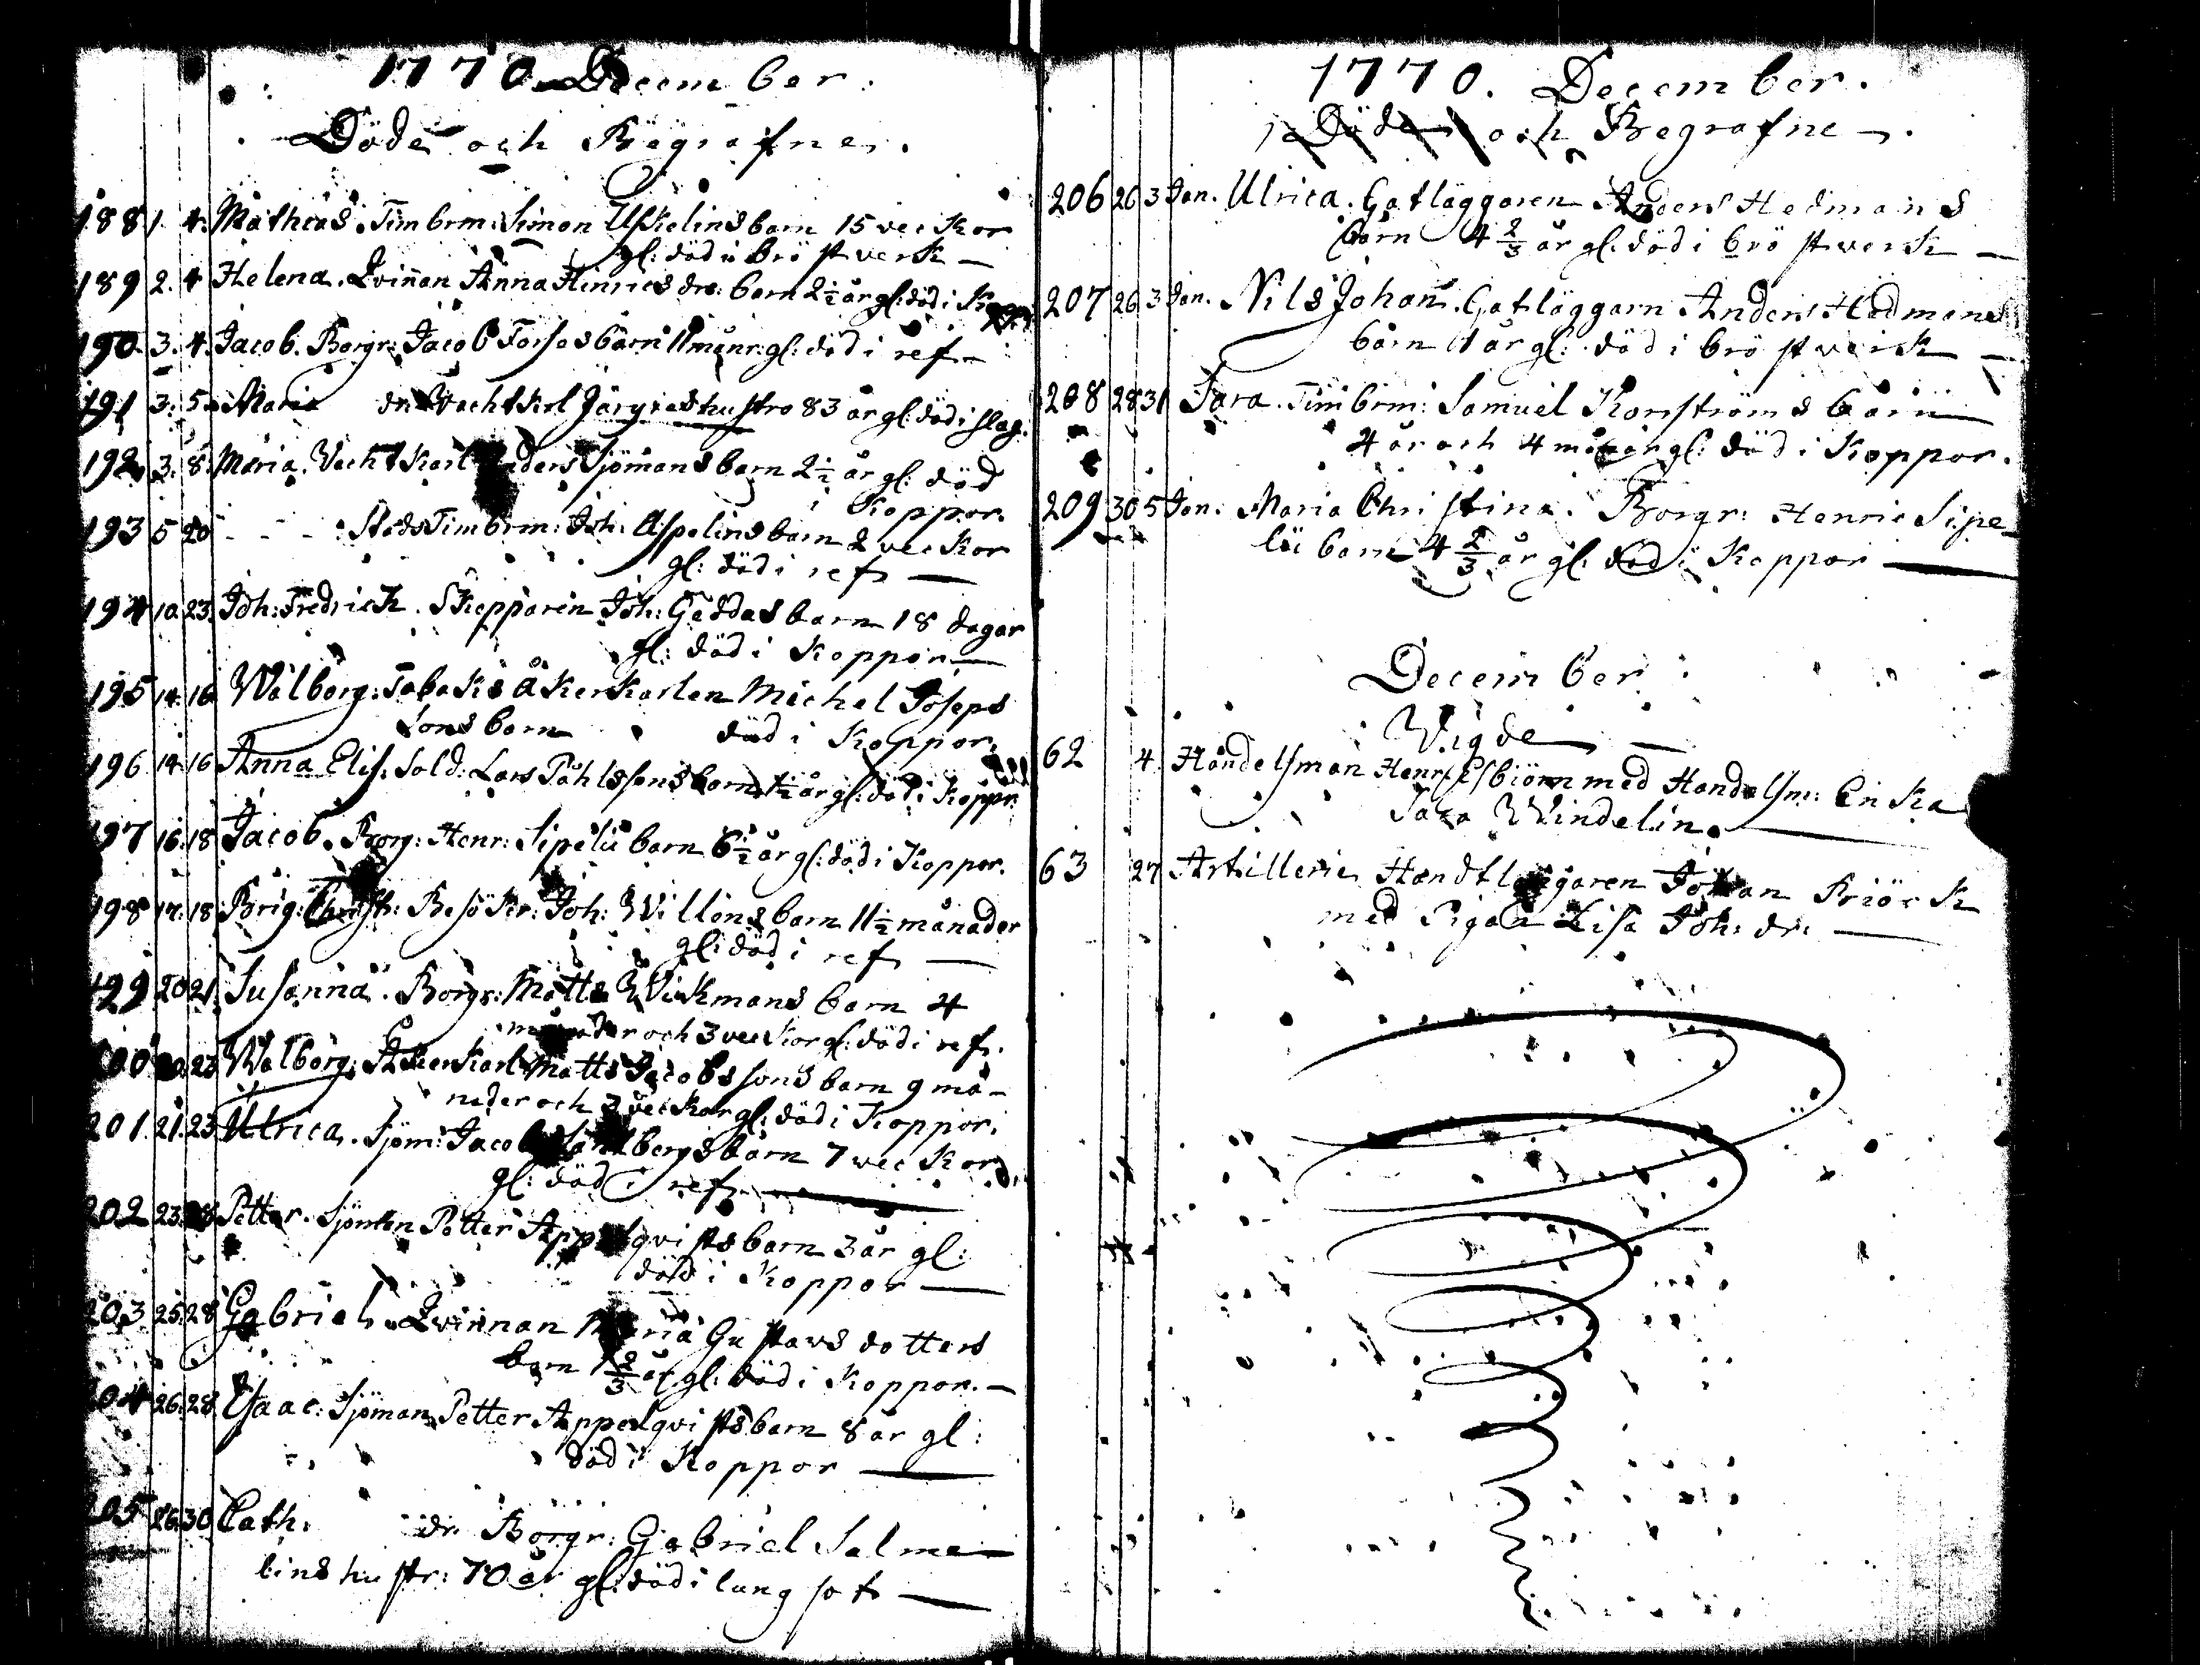 1770 December.
Döde och Begrafne.
188 1. 4. Mathias. Timbrm: Simon Uskelins barn 15 veckor
gl: död i bröstverk —
189 2. 4 Helena. Qvinnan Anna Hinrics dr: barn 2½ år gl: död i Koppr
190 3. 4. Jacob. Borgr: Jacob Forsos barn 11 månr: gl: död i ref —
191 3. 5 Maria dr Wachtkrl Järgens hustro 83 år gl: död i slag.
192 3. 8. Maria. Vachtkarl Anders Sjömans barn 2½ år gl: död
i Koppor.
193 5 20 - - - : Stads Timbrm: Joh: Aspelins barn 2 veckor
gl: död i ref —
194 10. 23. Joh: Fredrick. Skepparen Joh: Geddas barn 18 dagar
gl: död i Koppor —
195 14. 16 Walborg: Tobaks åkerkarlen Michel Joseps
sons barn död i Koppor.
196 14 16 Anna Elis. Sold: Lars Påhlssons barn 1½ år gl: död i Koppr.
197 16. 18 Jacob. Borg: Henr: Sipelii barn 6½ år gl: död i Koppor.
198 17. 18. Brig: Christ: Besökr: Joh: Willöns barn 11½ månader
gl: död i ref —
199 20 21. Susanna. Borgr: Matts Wikmans barn 4
månader och 3 veckor gl: död i ref.
200 20. 23 Walborg. Åkerkarl Matts Jacobssons barn 9 må-
nader och 3 veckor gl: död i Koppor.
201. 21. 23 Ulrica. Sjöm: Jacob bergs barn 7 veckor
gl: död i ref —
202 23. 28 Petter. Sjöman Petter Appelqvists barn 3 år gl:
död i Koppor —
203 25. 28 Gabriel. Qvinnan Maria Gustavs dotters
barn 1 2/3 år gl: död i Koppor. —
204 26. 28 Isaac: Sjöman Petter Appelqvists barn 8 år gl:
död i Koppor —
205 26. 30 Cath: dr Borgr: Gabriel Salme-
lins hustr: 70 år gl: död i lungsot —
1770. December.
Döde och Begrafne.
206 26 3 Jan. Ulrica. Gatläggaren Anders Hedmans
barn 4 2/3 år gl: död i bröstverk —
207 26 3 Jan. Nils Johan. Gatläggarn Anders Hedmans
barn 1 år gl: död i bröstverk —
208 28 31 Sara. Timbrm: Samuel Korsströms barn
4 år och 4 månar gl: död i Koppor.
209 30 5 Jan. Maria Christina. Borgr: Henric Sipe-
lii barn 4 2/3 år gl: död i Koppor —
December
Vigde —
62 4. Handelsman Henr: Esbiörn med Handelsm: Enka
Sara Windelin. —
63 27 Artillerie Handtlangaren Johan Briörk
med Pigan Lisa Joh: dr: —